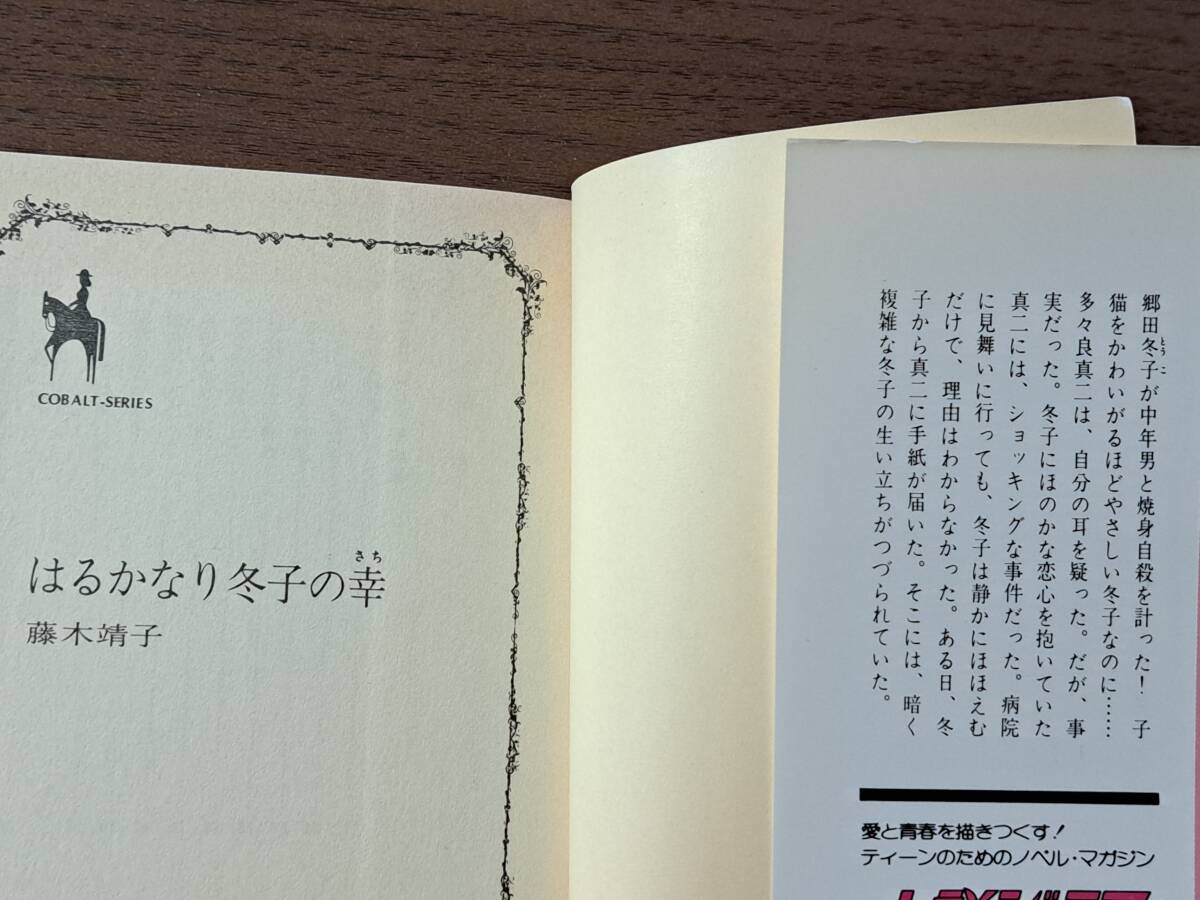 COBALT-SERIES
さち
はるかなり冬子の幸
藤木靖子
とうこ
郷田冬子が中年男と焼身自殺を計った! 子
猫をかわいがるほどやさしい冬子なのに……
多々良真二は、自分の耳を疑った。だが、事
実だった。冬子にほのかな恋心を抱いていた
真二には、ショッキングな事件だった。病院
に見舞いに行っても、冬子は静かにほほえむ
だけで、理由はわからなかった。ある日、冬
子から真二に手紙が届いた。そこには、暗く
複雑な冬子の生い立ちがつづられていた。
愛と青春を描きつくす!
ティーンのためのノベル・マガジン